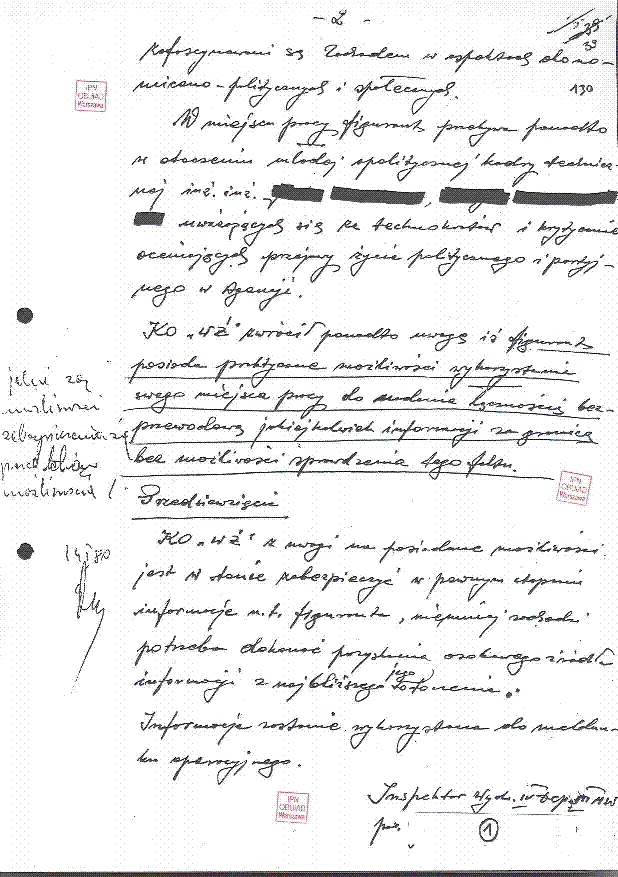 - 2 -
39
130
są w aspektach ekono-
miczno-politycznych i społecznych.
W miejscu pracy figurant przebywa ponadto
w otoczeniu młodej apolitycznej kadry technicz-
nej inż. inż.
uważających się za technokratów i krytycznie
oceniających przejawy życia politycznego i partyj-
nego w Agencji.
KO „WŻ" zwrócił ponadto uwagę iż figurant
posiada praktyczne możliwości wykorzystania
swego miejsca pracy do nadania łącznością bez-
przewodową jakiejkolwiek informacji za granicę
bez możliwości sprawdzenia tego faktu.
jakie są
możliwości
zabezpieczenia się
przed
możliwością
IPN
OBUiAD
Warszawa
IPN
OBUiAD
Warszawa
Przedsięwzięcia
KO „WŻ" z uwagi na posiadane możliwości
jest w stanie zabezpieczyć w pewnym stopniu
informacje n.t. figuranta, niemniej zachodzi
potrzeba dokonać pozyskania osobowego źródła
informacji z najbliższego jego otoczenia.
Informacja zostanie wykorzystana do meldun-
ku operacyjnego.
80
IPN
OBUiAD
Warszawa
Inspektor Wydz. IV Dep. III MSW
1